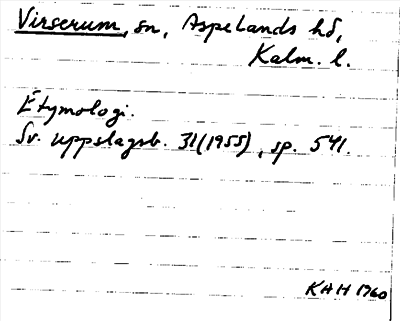 Virserum, sn, Aspelands hd,
Kalm. l.
Etymologi.
Sv. uppslagsb. 31(1955), sp. 541.
KAH 1960